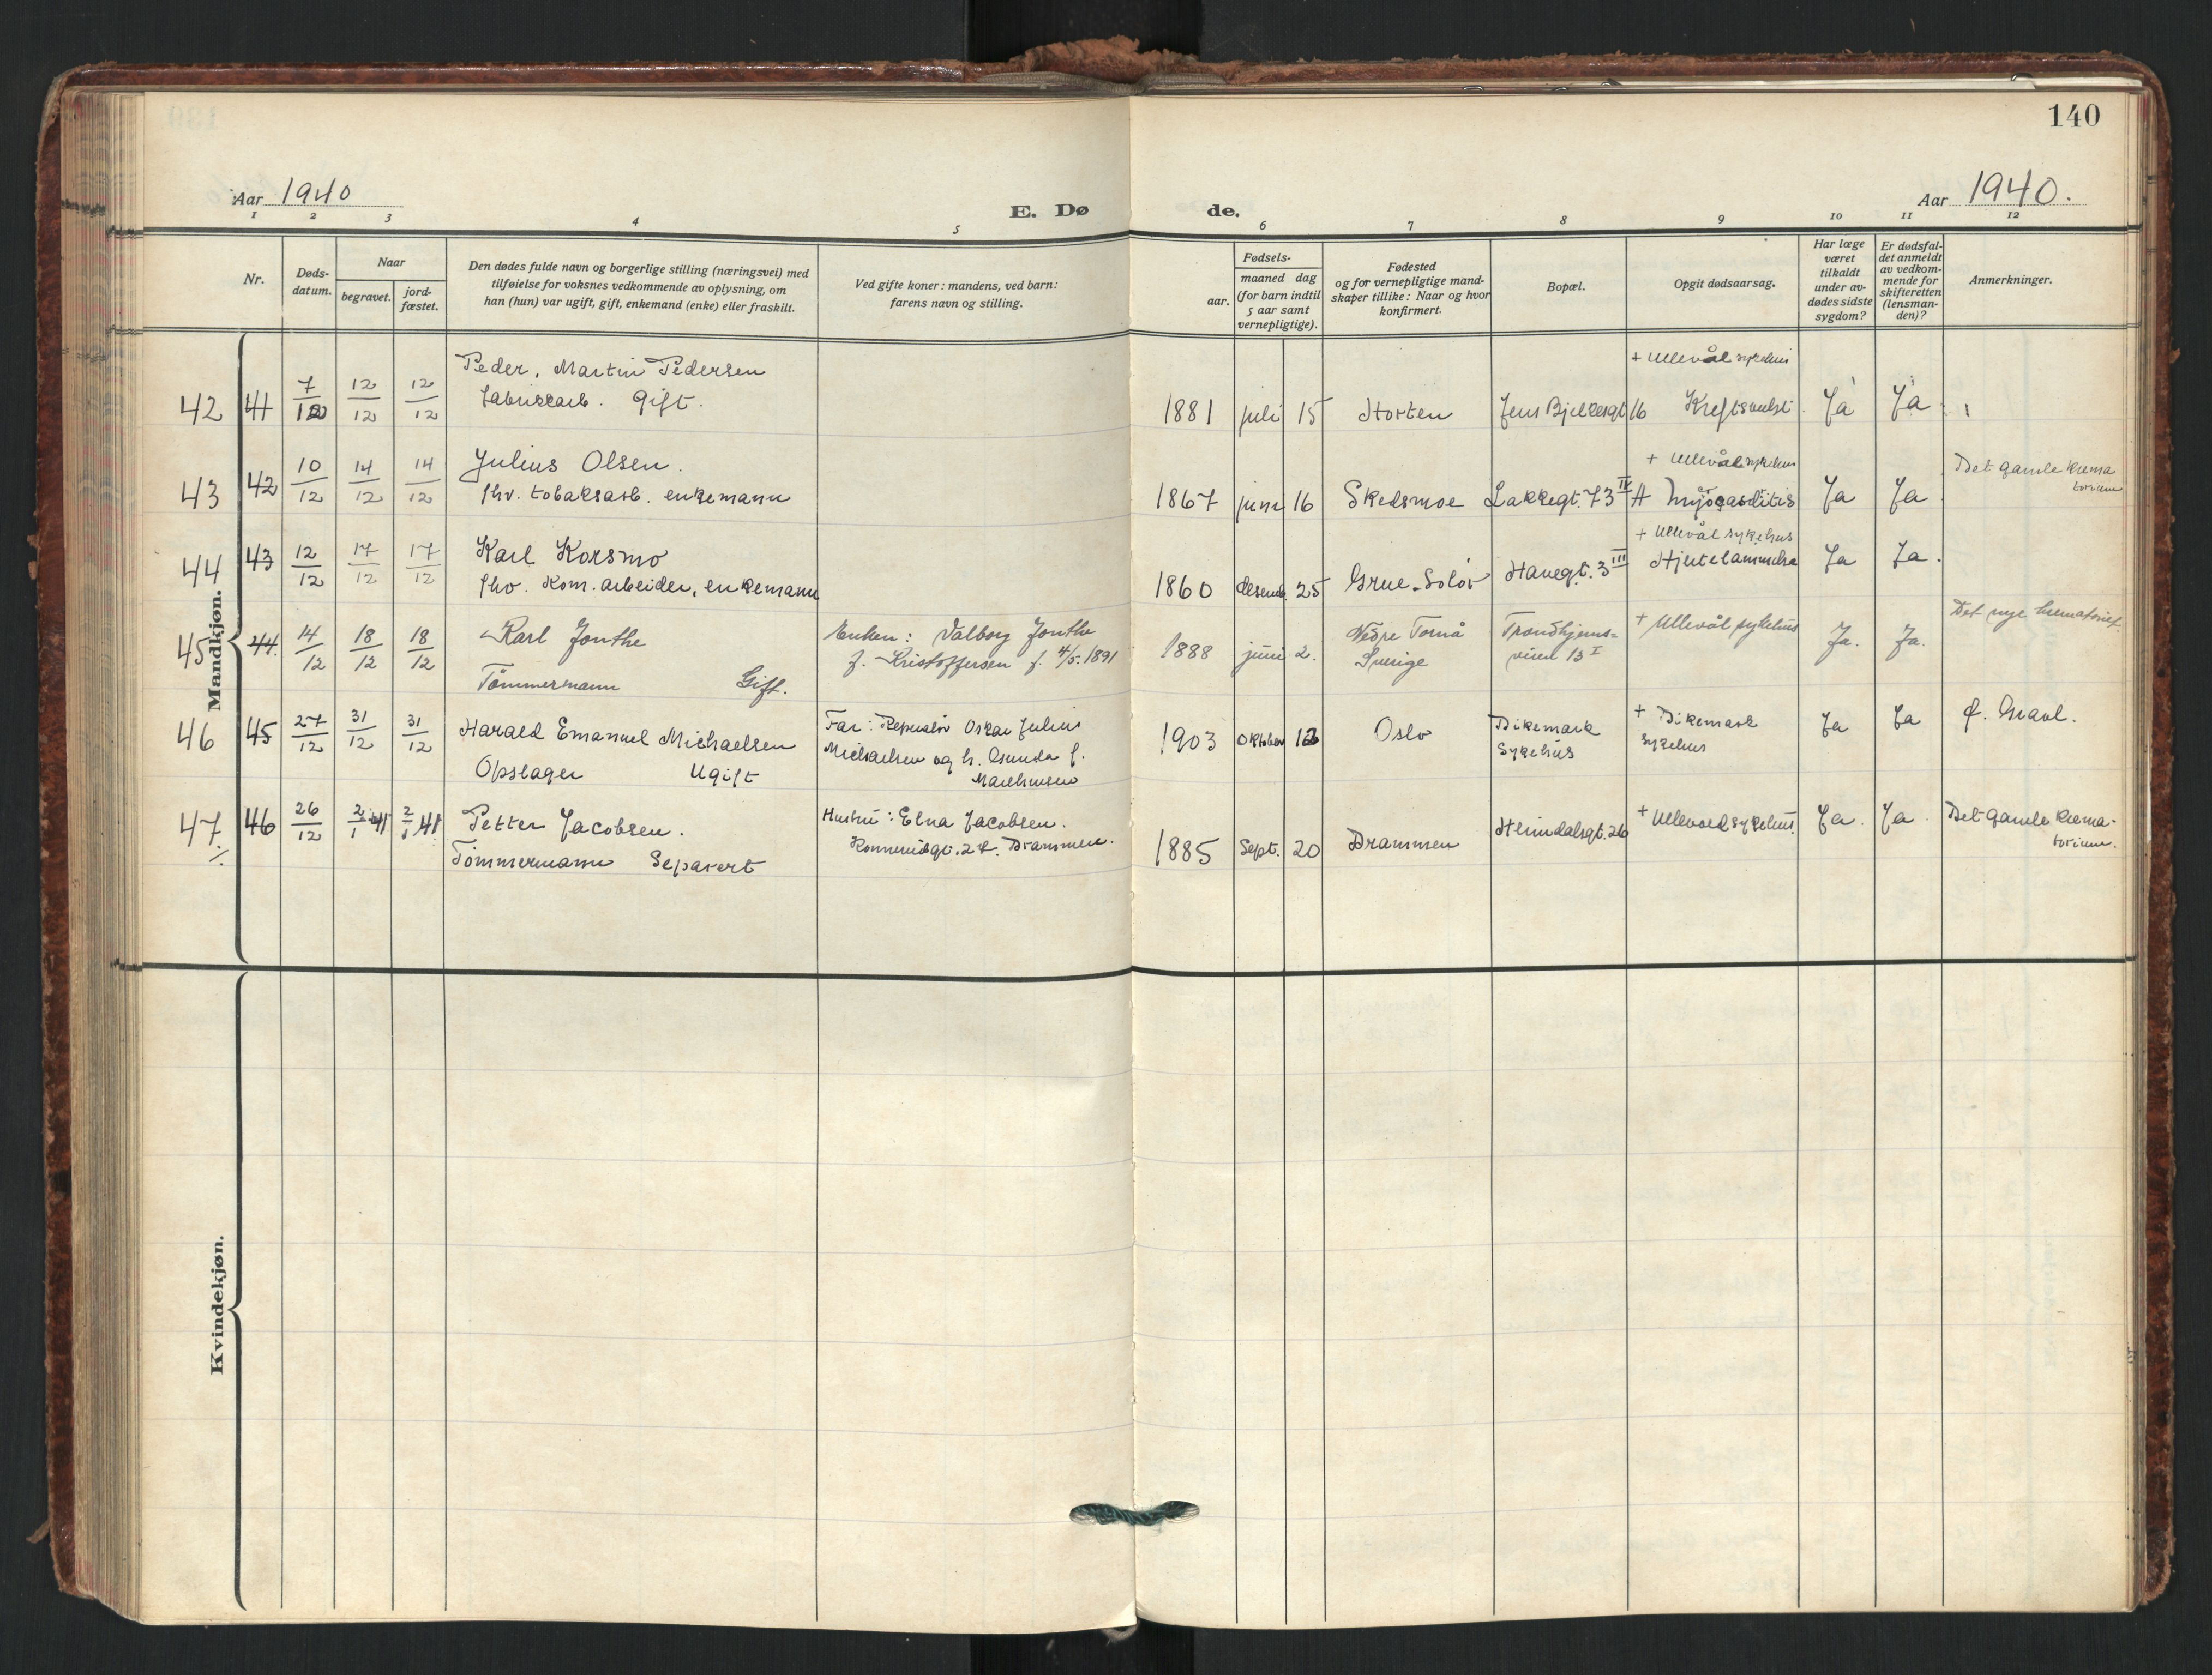 140
Aar 1940
E. Dø
de.
Aar 1940.
1 2 3 4 5 6 7 8 9 10 11 12
Nr.
Døds-
datum.
Naar
begravet.
jord-
fæstet.
Den dødes fulde navn og borgerlige stilling (næringsvei) med
tilføielse for voksnes vedkommende av oplysning, om
han (hun) var ugift, gift, enkemand (enke) eller fraskilt.
Ved gifte koner: mandens, ved barn:
farens navn og stilling.
Fødsels-
aar.
maaned dag
(for barn indtil
5 aar samt
vernepligtige).
Fødested
og for vernepligtige mand-
skaper tillike: Naar og hvor
konfirmert.
Bopæl.
Opgit dødsaarsag.
Har læge
været
tilkaldt
under av-
dødes sidste
sygdom?
Er dødsfal-
det anmeldt
av vedkom-
mende for
skifteretten
(lensman-
den)?
Anmerkninger.
Mandkjøn.
42 41 7/12 12/12 12/12 Peder, Martin Pedersen
Fabrikkarb. Gift.
1881 juli 15 Horten Jens Bjelkesgt 16
+ Ullevål sykehus
Kreftsvulst Ja Ja
43 42 10/12 14/12 14/12 Julius Olsen.
fhv. tobaksarb. enkemann
1867 juni 16 Skedsmoe Lakkegt. 73 IV A
+ Ullevål sykehus
Myocarditis Ja Ja
Det gamle krema
torium
44 43 12/12 17/12 17/12 Karl Korsmo
fhv. Kom. arbeider, enkemann
1860 desemb. 25 Grue-Solør Havegt. 3 III
+ Ullevål sykehus
Hjertelammelse Ja Ja.
45 44. 14/12 18/12 18/12 Karl Jonthe
Tømmermann Gift.
Enken: Valborg Jonthe
f. Kristoffersen f. 4/5. 1891
1888 juni 2. Nedre Tornå
Sverige
Trondhjems-
veien 13 I
+ Ullevål sykehus Ja. Ja.
Det nye krematoriet.
46 45 27/12 31/12 31/12 Harald Emanuel Michaelsen
Opslager Ugift
Far: Repslager Oskar Julius
Michaelsen og h. Gunda f.
1903 Oktober 12 Oslo Dikemark
Sykehus
+ Dikemark
sykehus Ja Ja Ø. Gravl.
47 46 26/12 2/1 41 2/1 41 Petter Jacobsen.
Tømmermann Separert
Hustru: Elna Jacobsen.
Konnerudgt. 24. Drammen.
1885 Sept. 20 Drammen Heimdalsgt. 26
+ Ullevold sykehus. Ja. Ja.
Det gamle krema-
torium.
Kvindekjøn.